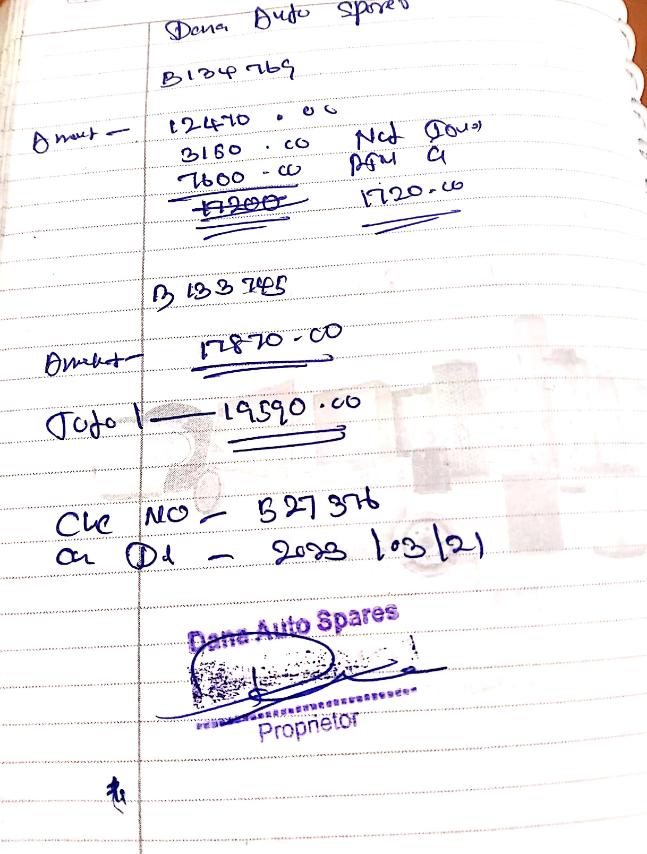 Dana Auto Spares
B134769
Amount - 12470.00
3160.00 Net
7600-00
17200 1720.00
B 133745
Amount 17870-00
Total - 19590.00
Che NO - 527376
on - 2023/03/21
Dana Auto Spares
Proprietor